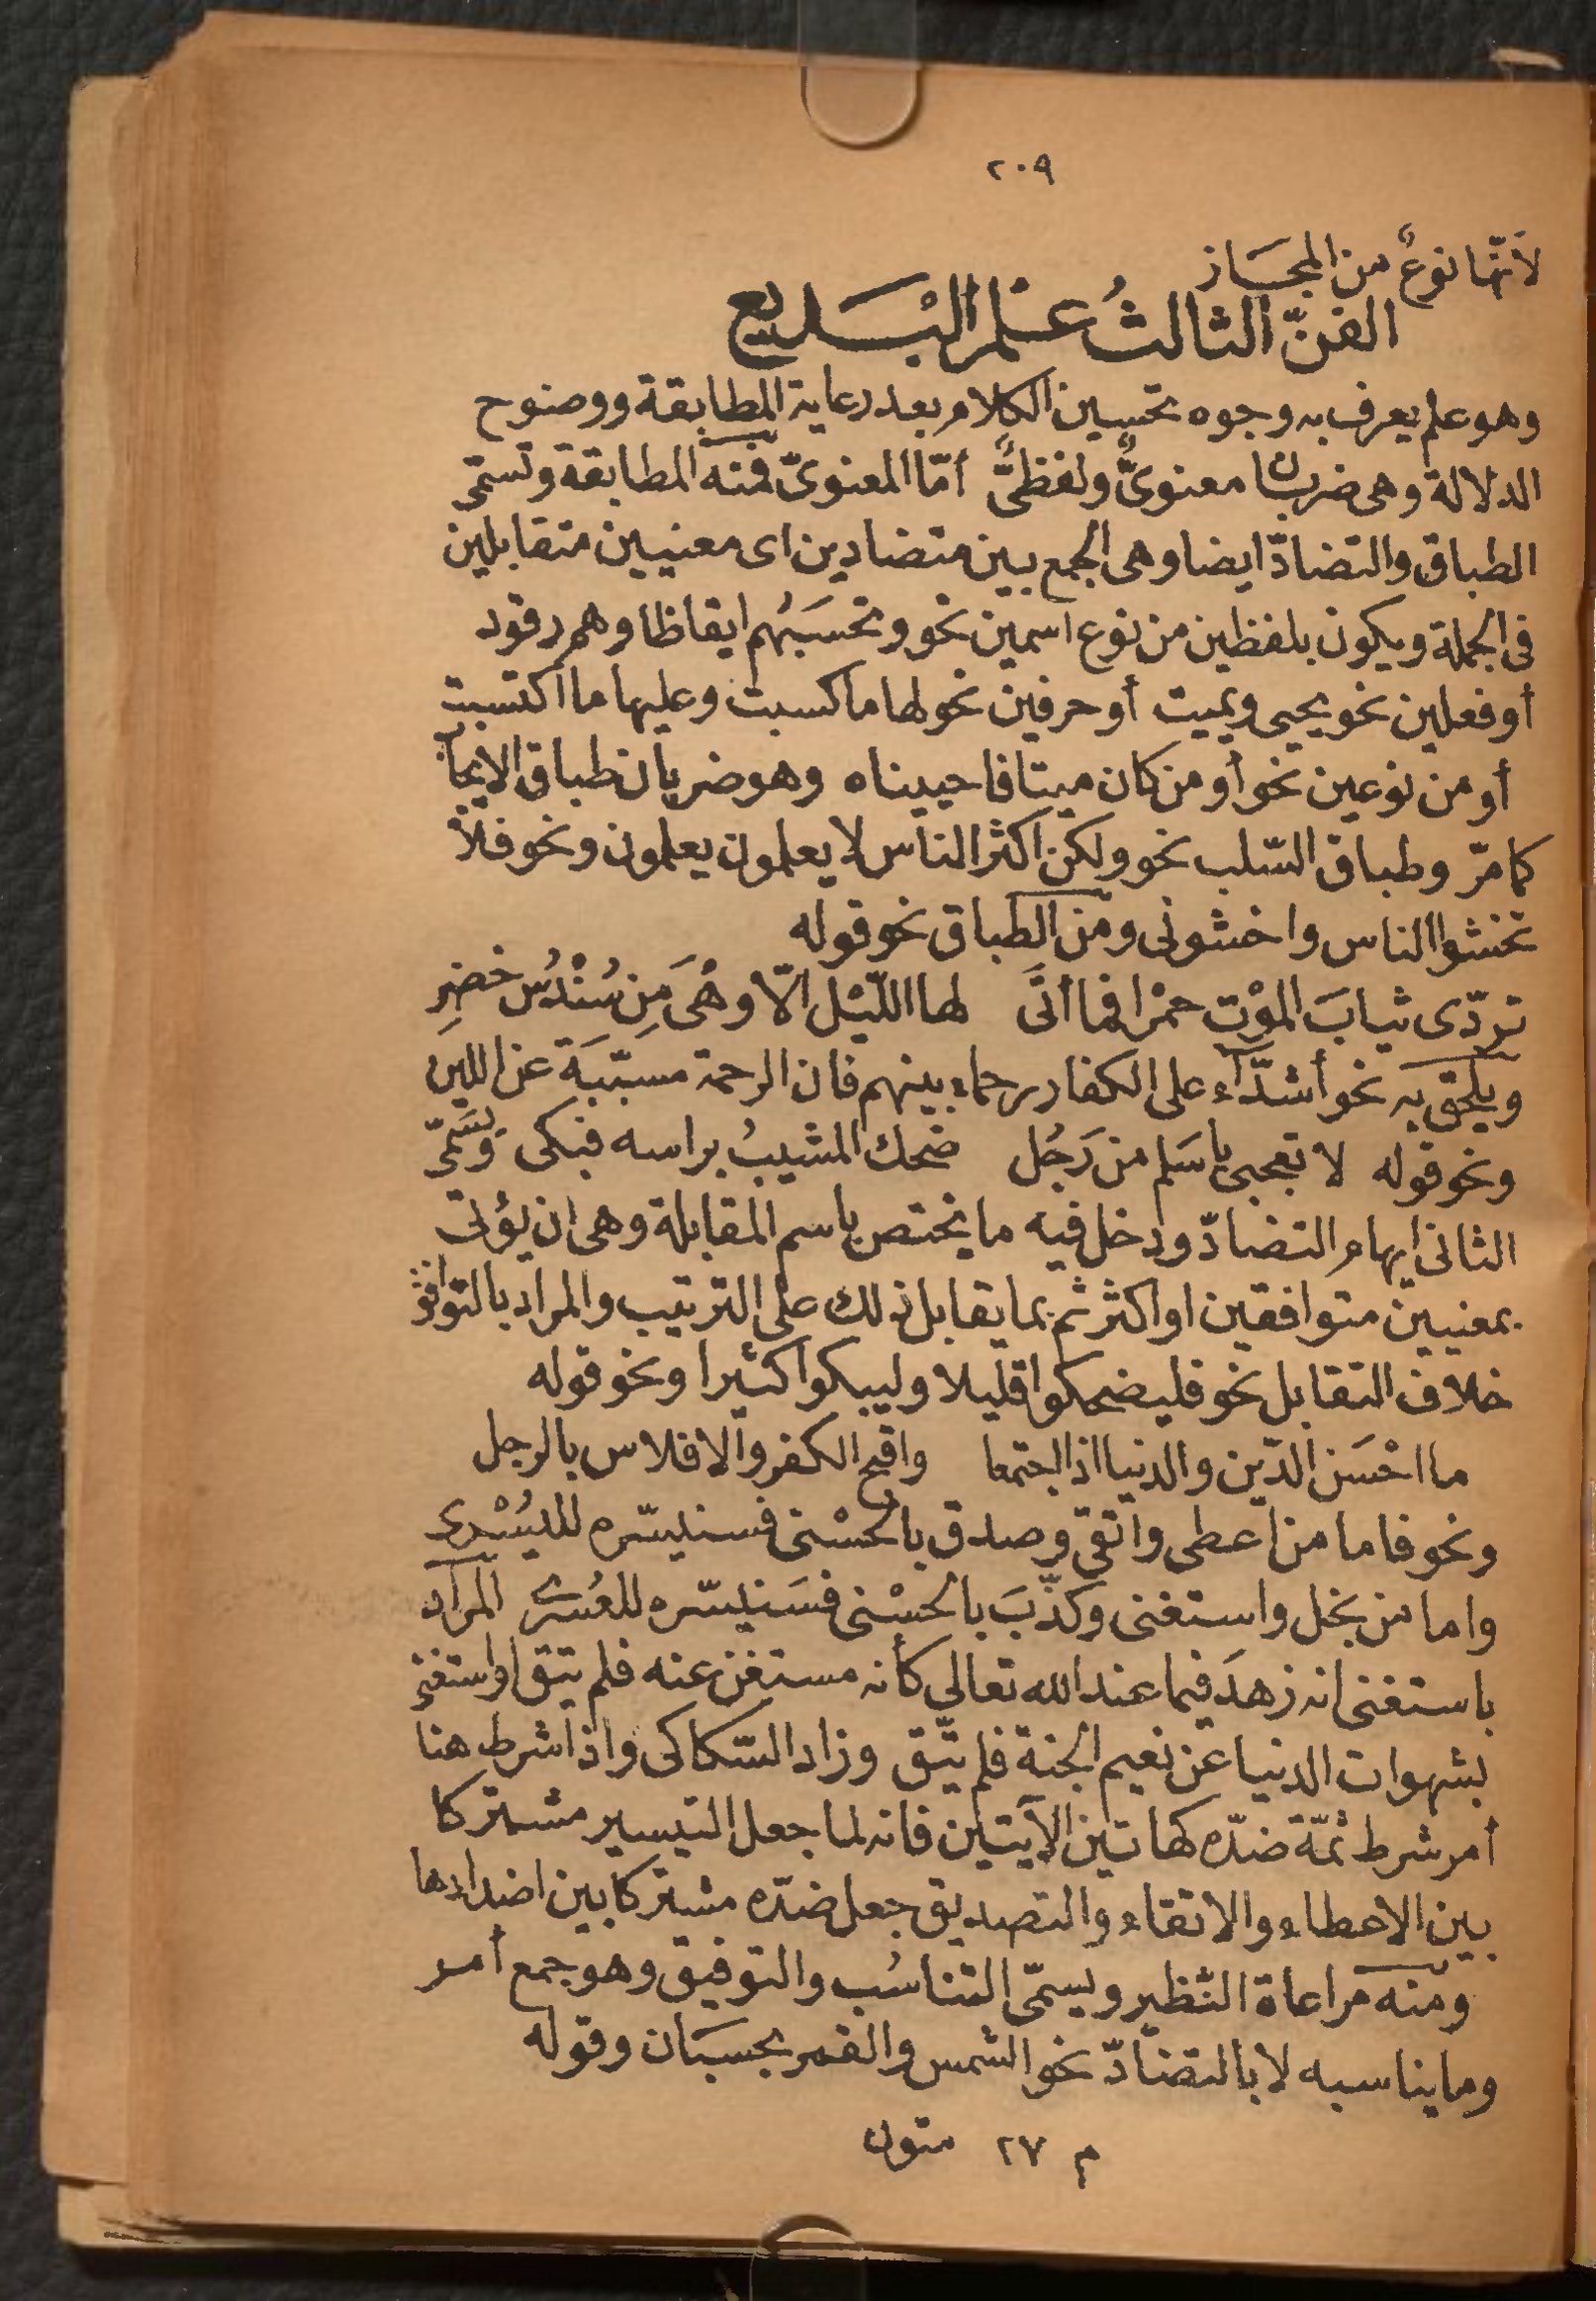 ٢٠٩
لأنّها نوعٌ من المجَاز
الفنّ الثالثُ عِلم البَديع
وهو علم يعرف به وجوه تحسين الكلام بعد رعاية المطابقة ووضوح
الدلالة وهى ضربان معنوىٌّ ولفظىٌّ أمّا المعنوىّ فمنه المطابقة وتسمّى
الطباق والتضادّ ايضا وهى الجمع بين متضادين اى معنيين متقابلين
فى الجملة ويكون بلفظين من نوع اسمين نحو وتحسَبُهم ايقاظا وهم رقود
أو فعلين نحو يحيى ويميت أو حرفين نحو لها ما كسبت وعليها ما اكتسبت
أو من نوعين نحو أو من كان ميتا فاحييناه وهو ضربان طباق الايجاب
كما مرّ وطباق السّلب نحو ولكن اكثر الناس لا يعلمون يعلمون ونحو فلا
تخشوا الناس واخشونى ومن الطباق نحو قوله
تردّى ثيابَ الموْت حمْرا فما أتَى لها اللّيْل الّا وهْىَ مِن سُنْدُس خضرِ
ويلحق به نحو أشدّآء على الكفار رحماء بينهم فان الرحمة مسبّبَة عن اللين
ونحو قوله لا تعجبى يا سَلم من رَجُل ضحك المشيبُ براسه فبكى ويُسَمّى
الثانى ايهام التضادّ ودخل فيه ما يختص باسم المقابلة وهى ان يؤتى
بمعنيين متوافقين او اكثر ثم بما يقابل ذلك على الترتيب والمراد بالتوافق
خلاف التقابل نحو فليضحكوا قليلا وليبكوا كثيرا ونحو قوله
ما احْسَن الدّين والدنيا اذا اجتمعا واقبح الكفر والافلاس بالرجل
ونحو فاما من اعطى واتقى وصدق بالحسْنى فسنيسّره لليُسْرى
واما من بخل واستغنى وكذّبَ بالحسْنى فسَنيسّره للعُسرى المراد
باستغنى انه زهدَ فيما عند الله تعالى كأنه مستغن عنه فلم يتق او استغنى
بشهوات الدنيا عن نعيم الجنة فلم يتّق وزاد السّكاكى واذا شرط هنا
أمر شرط ثمّة ضدّه كهاتين الآيتين فانه لما جعل التيسير مشتركا
بين الاعطاء والاتقاء والتصديق جعل ضدّه مشتركا بين اضدادها
ومنه مراعاة النّظير ويسمّى التناسُب والتوفيق وهو جمع أمر
وما يناسبه لا بالتضادّ نحو الشمس والقمر بحسبَان وقوله
م ٢٧ متون